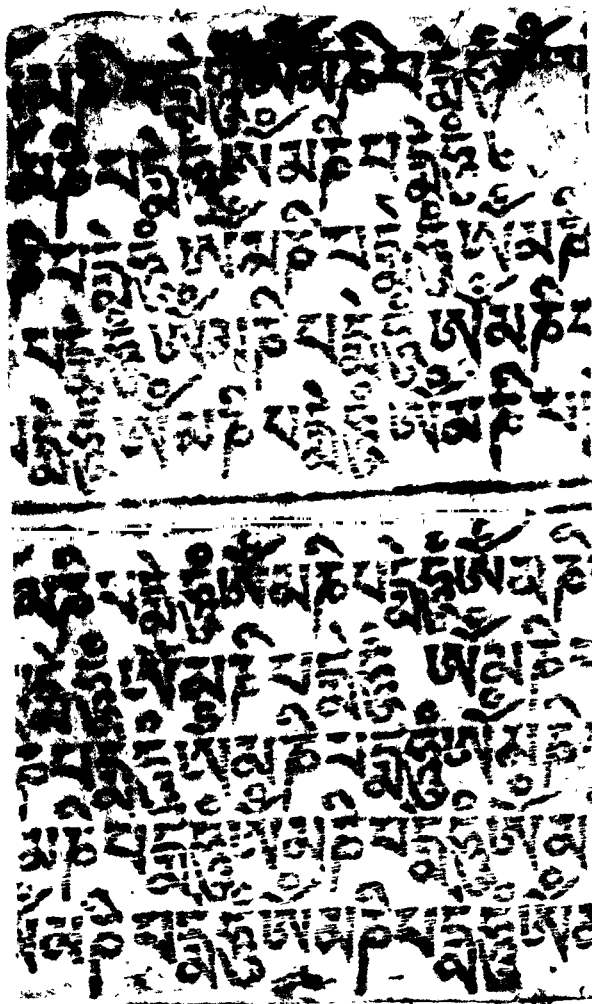 མ་ཎི་པདྨེ་ཧཱུྃ་ཨོཾ་མ་ཎི་པདྨེ་ཧཱུྃ་ཨོཾ་མ
མ་ཎི་པདྨེ་ཧཱུྃ་ཨོཾ་མ་ཎི་པདྨེ་ཧཱུྃ
ཎི་པདྨེ་ཧཱུྃ་ཨོཾ་མ་ཎི་པདྨེ་ཧཱུྃ་ཨོཾ་མ་ཎི
པདྨེ་ཧཱུྃ་ཨོཾ་མ་ཎི་པདྨེ་ཧཱུྃ་ཨོཾ་མ་ཎི་པ
པདྨེ་ཧཱུྃ་ཨོཾ་མ་ཎི་པདྨེ་ཧཱུྃ་ཨོཾ་མ་ཎི་པ
མ་ཎི་པདྨེ་ཧཱུྃ་ཨོཾ་མ་ཎི་པདྨེ་ཧཱུྃ་ཨོཾ་མ་ཎི
དྨེ་ཧཱུྃ་ཨོཾ་མ་ཎི་པདྨེ་ཧཱུྃ་ཨོཾ་མ་ཎི
ཎི་པདྨེ་ཧཱུྃ་ཨོཾ་མ་ཎི་པདྨེ་ཧཱུྃ་ཨོཾ་མ་ཎི
མ་ཎི་པདྨེ་ཧཱུྃ་ཨོཾ་མ་ཎི་པདྨེ་ཧཱུྃ་ཨོཾ་མ
ཨོཾ་མ་ཎི་པདྨེ་ཧཱུྃ་ཨོཾ་མ་ཎི་པདྨེ་ཧཱུྃ་ཨོཾ་མ